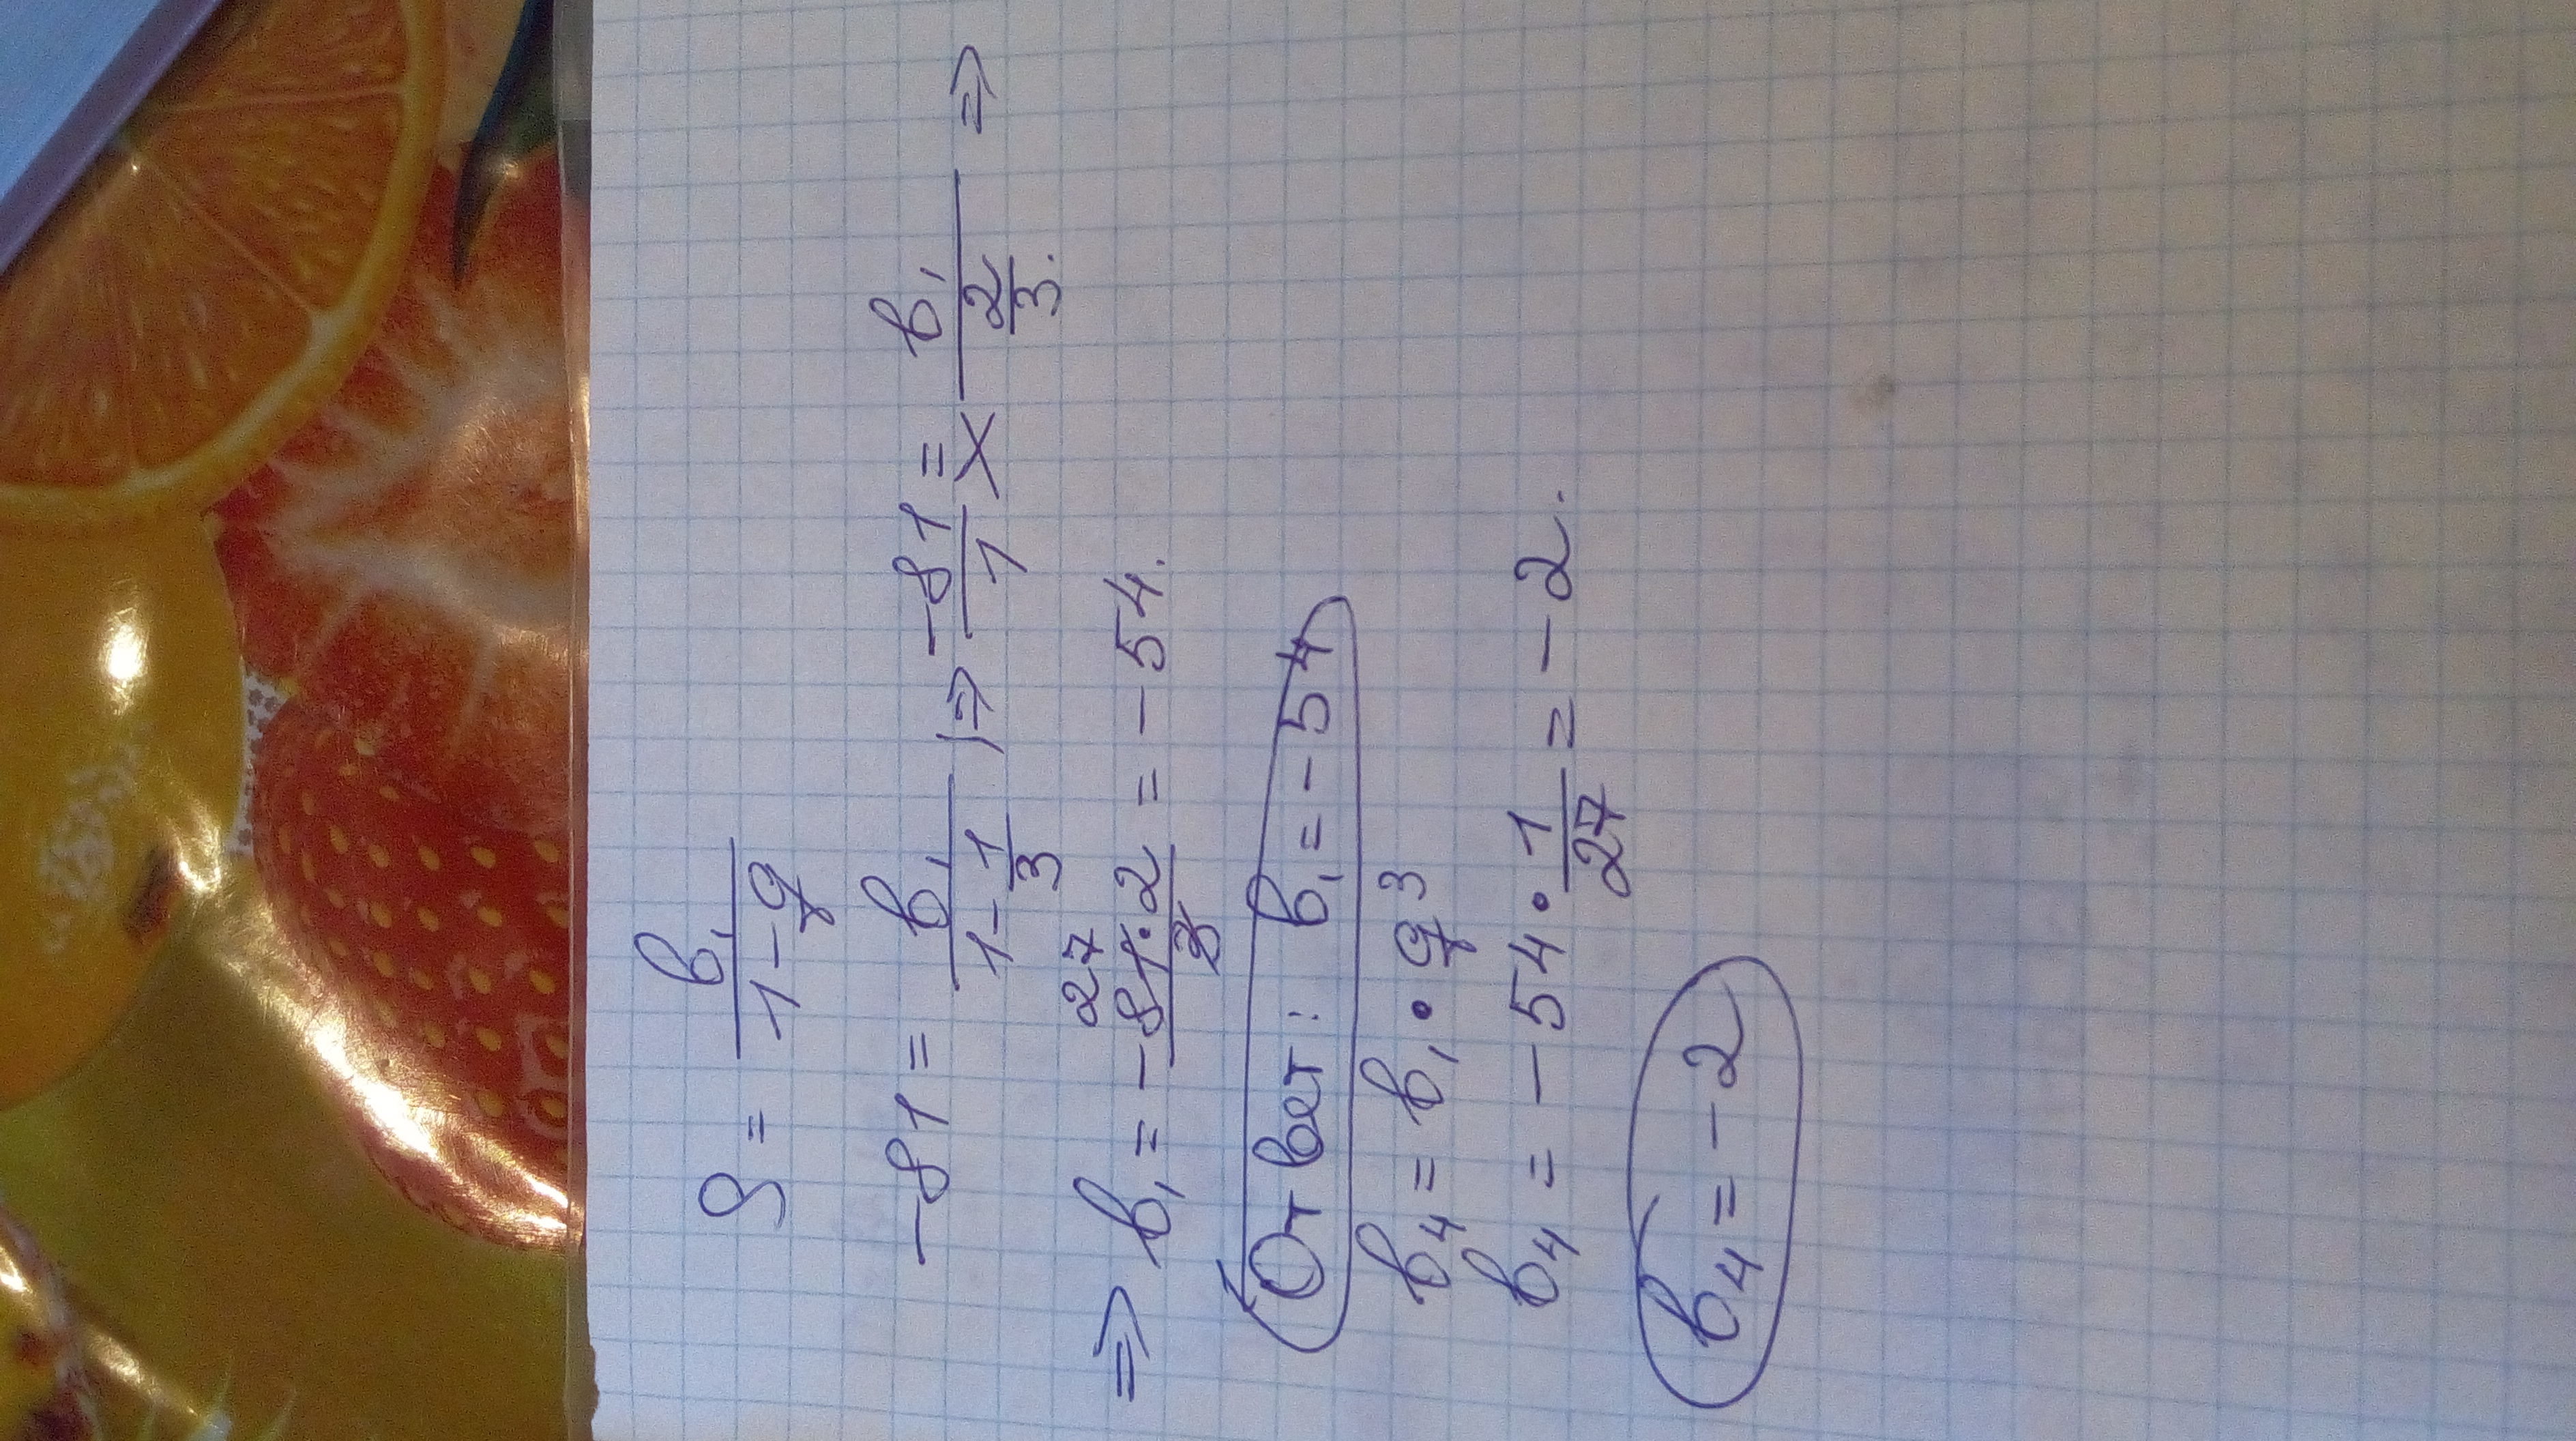 S = b₁/(1-q)
-81 = b₁/(1-1/3) |⇒ -81/1 = b₁/(2/3) ⇒
⇒ b₁ = -81·2/3 = -54.
27
Ответ: b₁ = -54
b₄ = b₁ · q³
b₄ = -54 · 1/27 = -2.
b₄ = -2